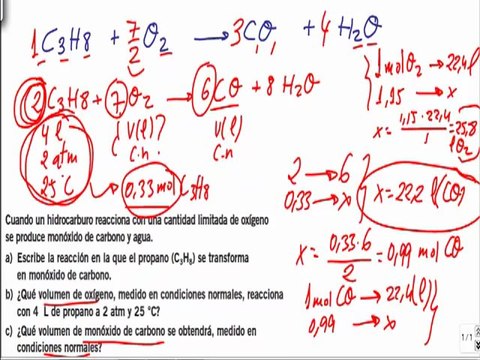 1C3H8 + 7/2 O2 → 3CO + 4H2O
2C3H8 + 7O2 → 6CO + 8H2O
4 l
2 atm
25°C
¿V(l)?
C.n.
V(l)
C.n
0,33 mol C3H8
1 mol O2 → 22,4 l
1,15 → x
x = 1,15·22,4 / 1 = 25,8 l O2
2 → 6
0,33 → x
x = 22,2 l (CO)
x = 0,33·6 / 2 = 0,99 mol CO
1 mol CO → 22,4 (l)
0,99 → x
Cuando un hidrocarburo reacciona con una cantidad limitada de oxígeno
se produce monóxido de carbono y agua.
a) Escribe la reacción en la que el propano (C3H8) se transforma
en monóxido de carbono.
b) ¿Qué volumen de oxígeno, medido en condiciones normales, reacciona
con 4 L de propano a 2 atm y 25 °C?
c) ¿Qué volumen de monóxido de carbono se obtendrá, medido en
condiciones normales?
1/1